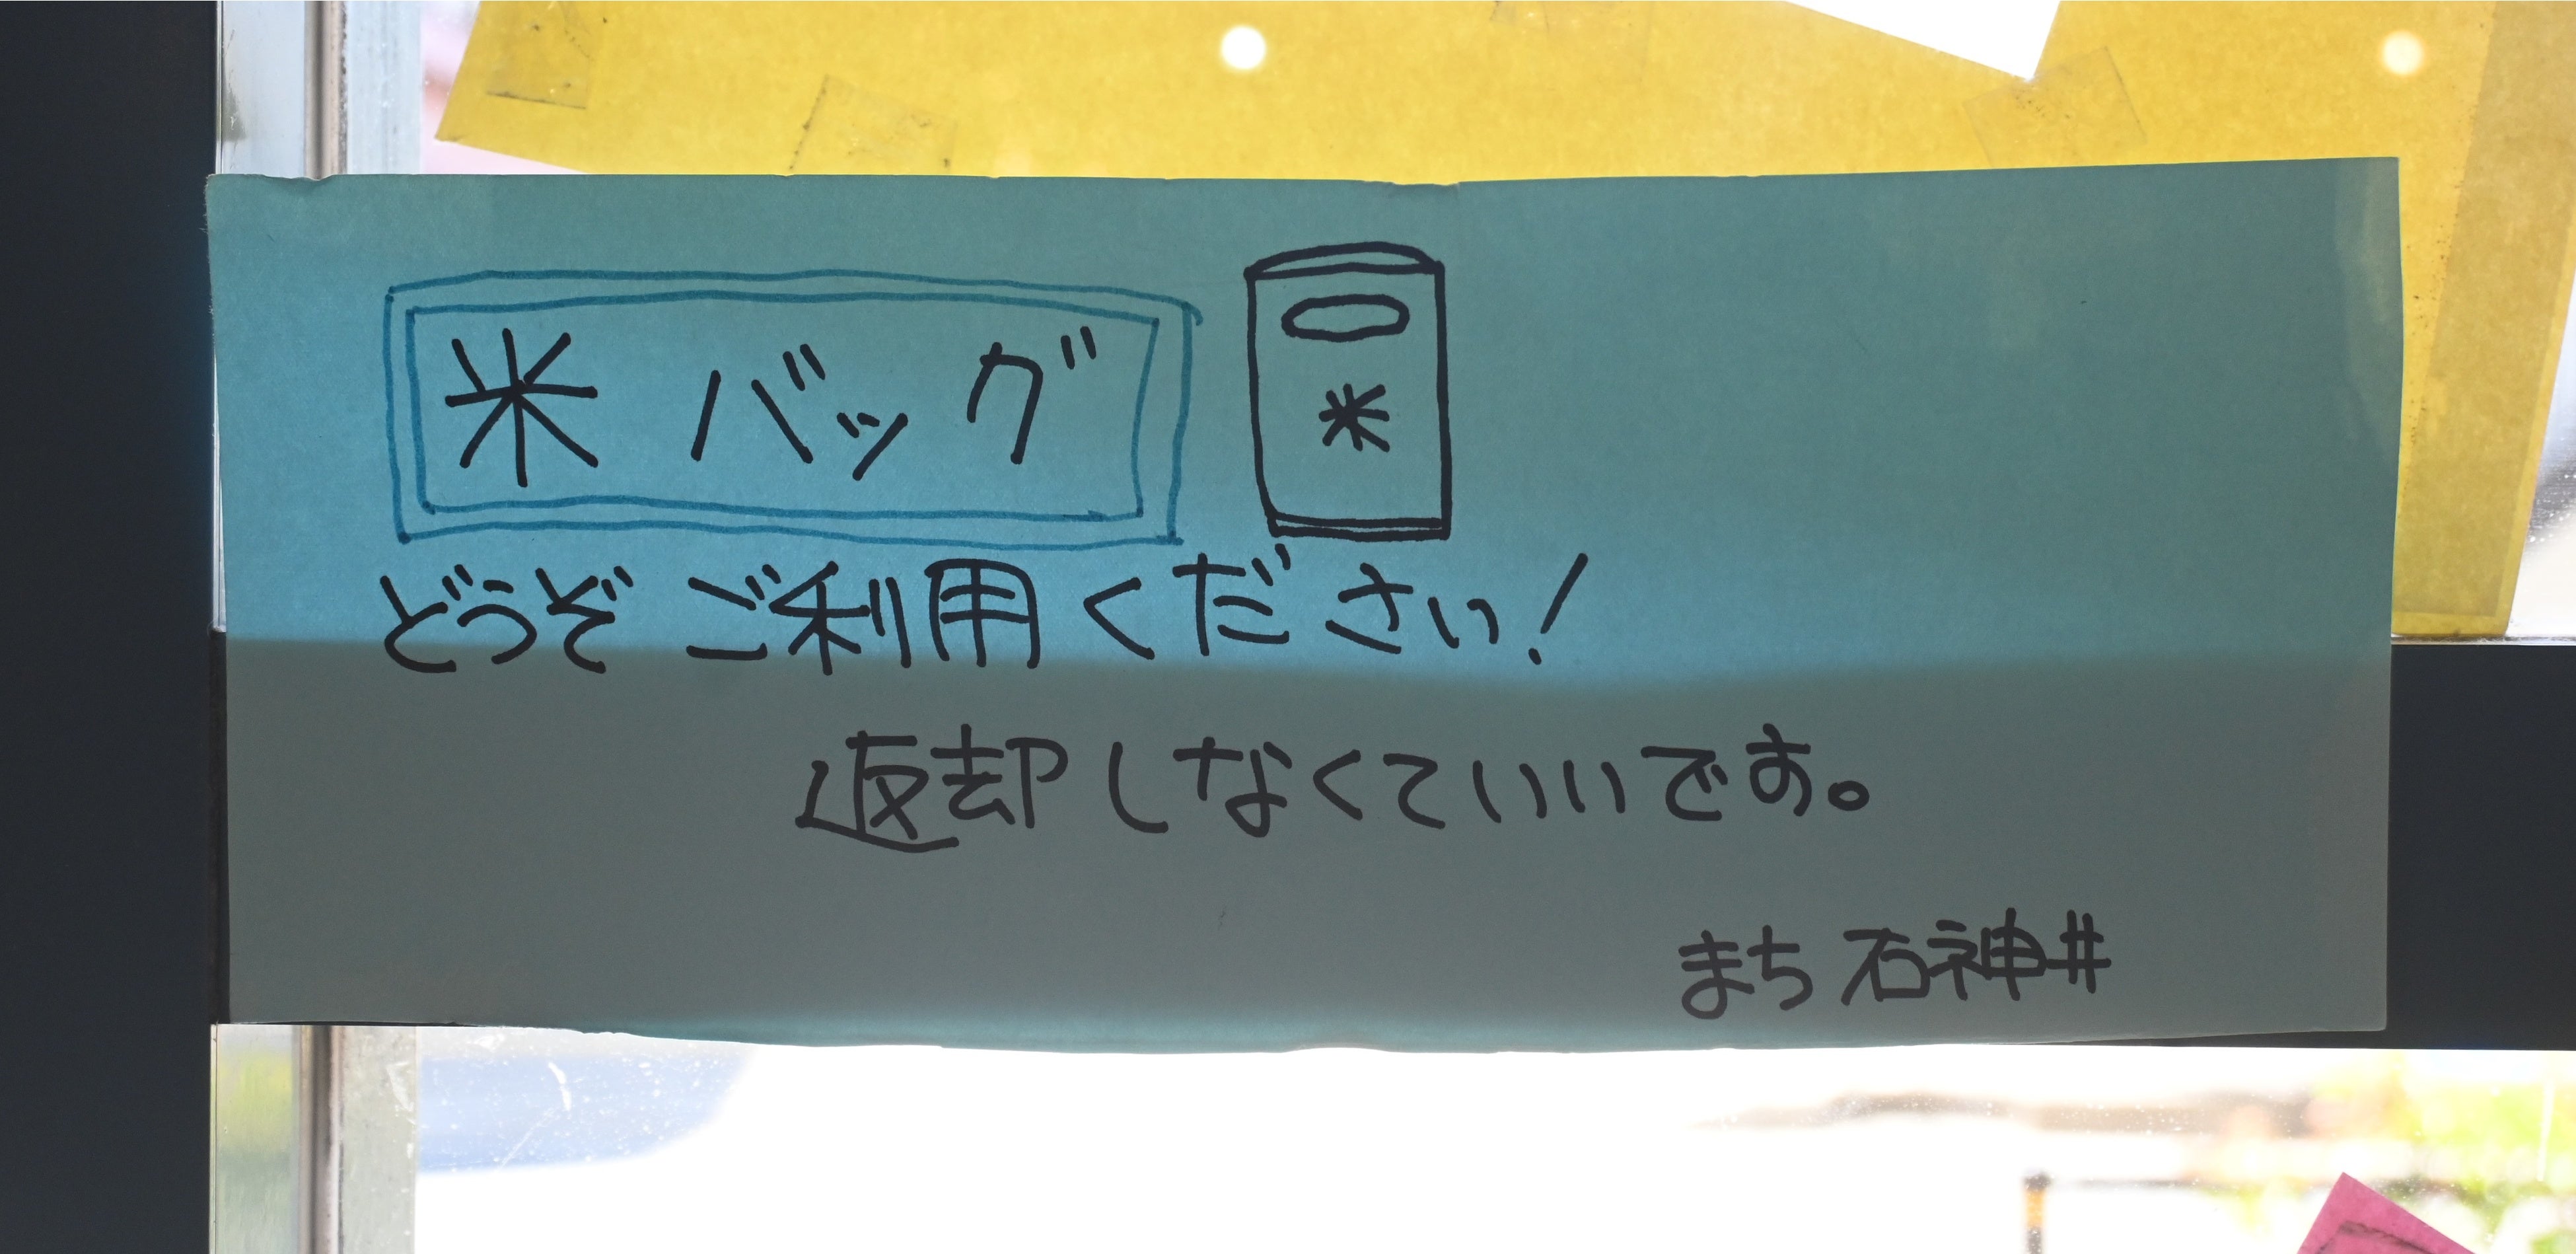 米バッグ
米
どうぞご利用ください!
返却しなくていいです。
まち石神井